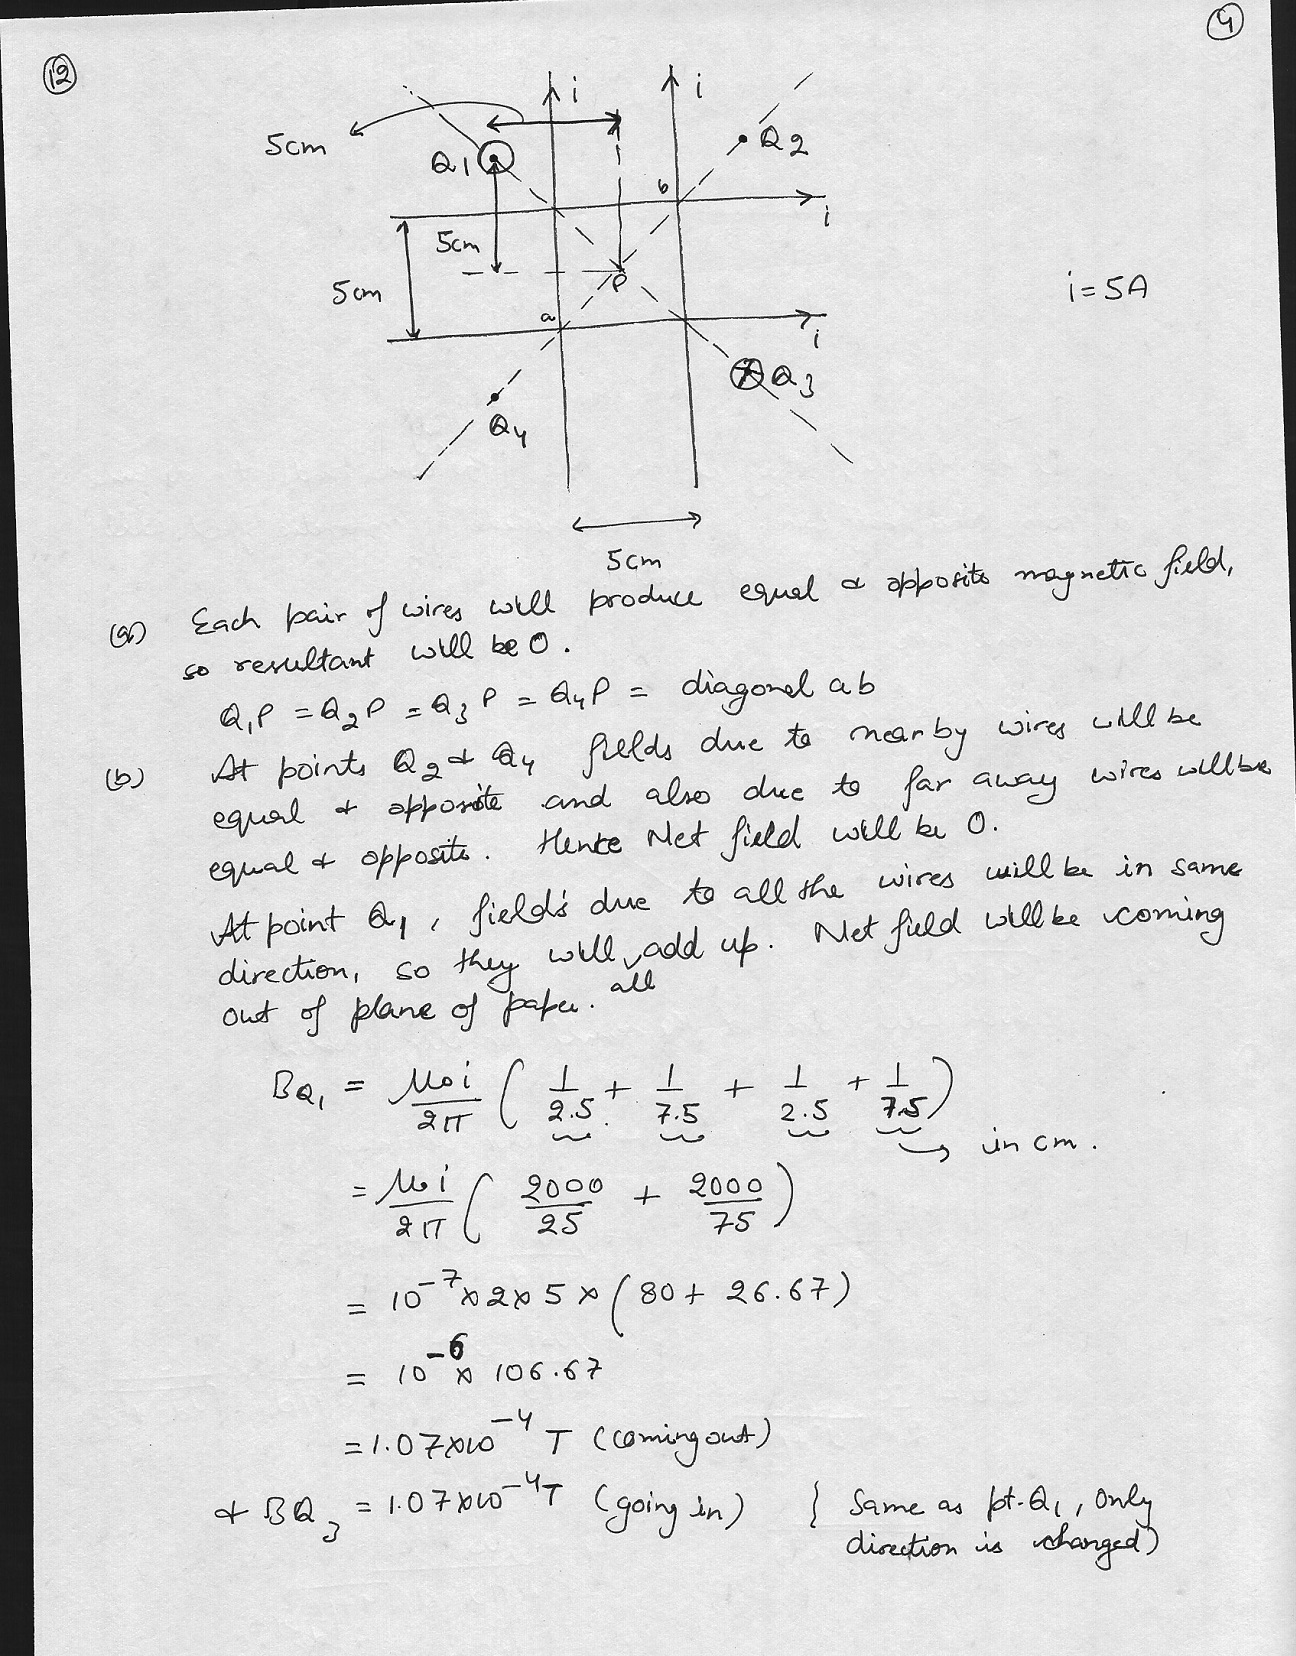 4
12
i
i
5cm
Q1
Q2
b
i
5cm
5cm
P
i=5A
a
i
Q3
Q4
5cm
(a) Each pair of wires will produce equal & opposite magnetic field,
so resultant will be 0.
Q1P = Q2P = Q3P = Q4P = diagonal ab
(b) At points Q2 & Q4 fields due to near by wires will be
equal & opposite and also due to far away wires will be
equal & opposite. Hence Net field will be 0.
At point Q1, field's due to all the wires will be in same
direction, so they will all add up. Net field will be coming
out of plane of paper.
BQ1 = μ0i/2π (1/2.5 + 1/7.5 + 1/2.5 + 1/7.5) → in cm.
= μ0i/2π (2000/25 + 2000/75)
= 10^-7 × 2 × 5 × (80 + 26.67)
= 10^-6 × 106.67
= 1.07×10^-4 T (coming out)
& BQ3 = 1.07×10^-4 T (going in) { Same as pt. Q1, only
direction is changed)